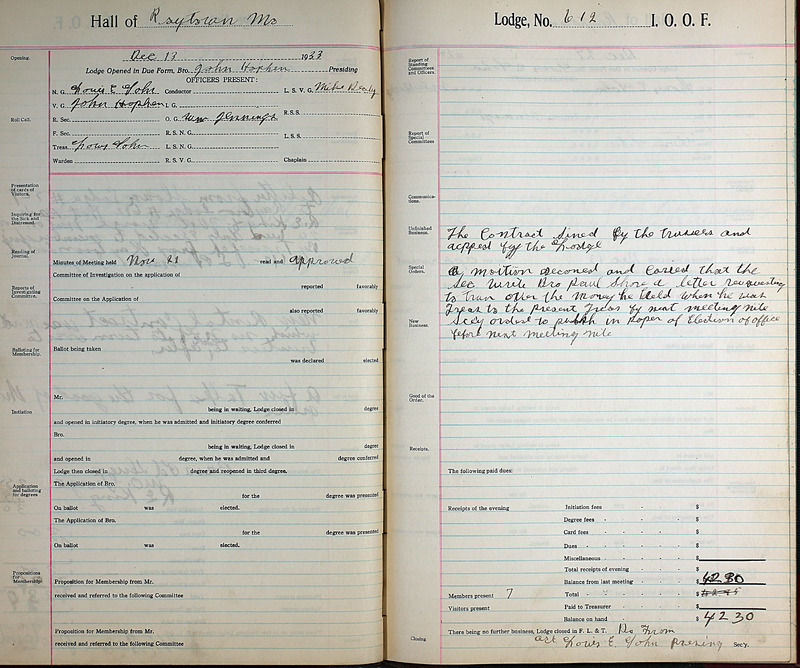 Hall of Raytown Mo
Opening.
Dec 13 1933
Lodge Opened in Due Form, Bro. John Hophen Presiding
OFFICERS PRESENT:
N. G. Louis E John Conductor L. S. V. G. Mike
V. G. John Hophen I. G. R. S. S.
Roll Call.
R. Sec. O. G. Wm Jennings
F. Sec. R. S. N. G. L. S. S.
Treas. Louis John L. S. N. G.
Warden R. S. V. G. Chaplain
Presentation of cards of Visitors.
Inquiring for the Sick and Distressed.
Reading of Journal.
Minutes of Meeting held Nov. 21 read and approved
Committee of Investigation on the application of
Reports of Investigating Committee.
reported favorably
Committee on the Application of
also reported favorably
Balloting for Membership.
Ballot being taken
was declared elected
Mr.
Initiation
being in waiting, Lodge closed in degree
and opened in initiatory degree, when he was admitted and initiatory degree conferred
Bro.
being in waiting, Lodge closed in degree
and opened in degree, when he was admitted and degree conferred
Lodge then closed in degree and reopened in third degree.
Application and balloting for degrees
The Application of Bro.
for the degree was presented
On ballot was elected.
The Application of Bro.
for the degree was presented
On ballot was elected.
Propositions for Membership
Proposition for Membership from Mr.
received and referred to the following Committee
Proposition for Membership from Mr.
received and referred to the following Committee
Lodge, No. 612 I. O. O. F.
Report of Standing Committees and Officers.
Report of Special Committees
Communications.
Unfinished Business.
The Contract sined by the trussees and
acpped by the Lodge
Special Orders.
A motion seconed and carred that the
Sec write Bro Paul Shore a letter requesting
to tran offer the money he held when he was
Treas to the present Treas by next meeting nite
New Business.
Secy ordred to publish in Paper of Election of office
before next meeting nite
Good of the Order.
Receipts.
The following paid dues:
Receipts of the evening Initiation fees $
Degree fees $
Card fees $
Dues $
Miscellaneous $
Total receipts of evening $
Balance from last meeting $ 42 30
Members present 7 Total $
Visitors present Paid to Treasurer $
Balance on hand $ 42 30
Closing
There being no further business, Lodge closed in F. L. & T.
act Louis E. John Sec'y.